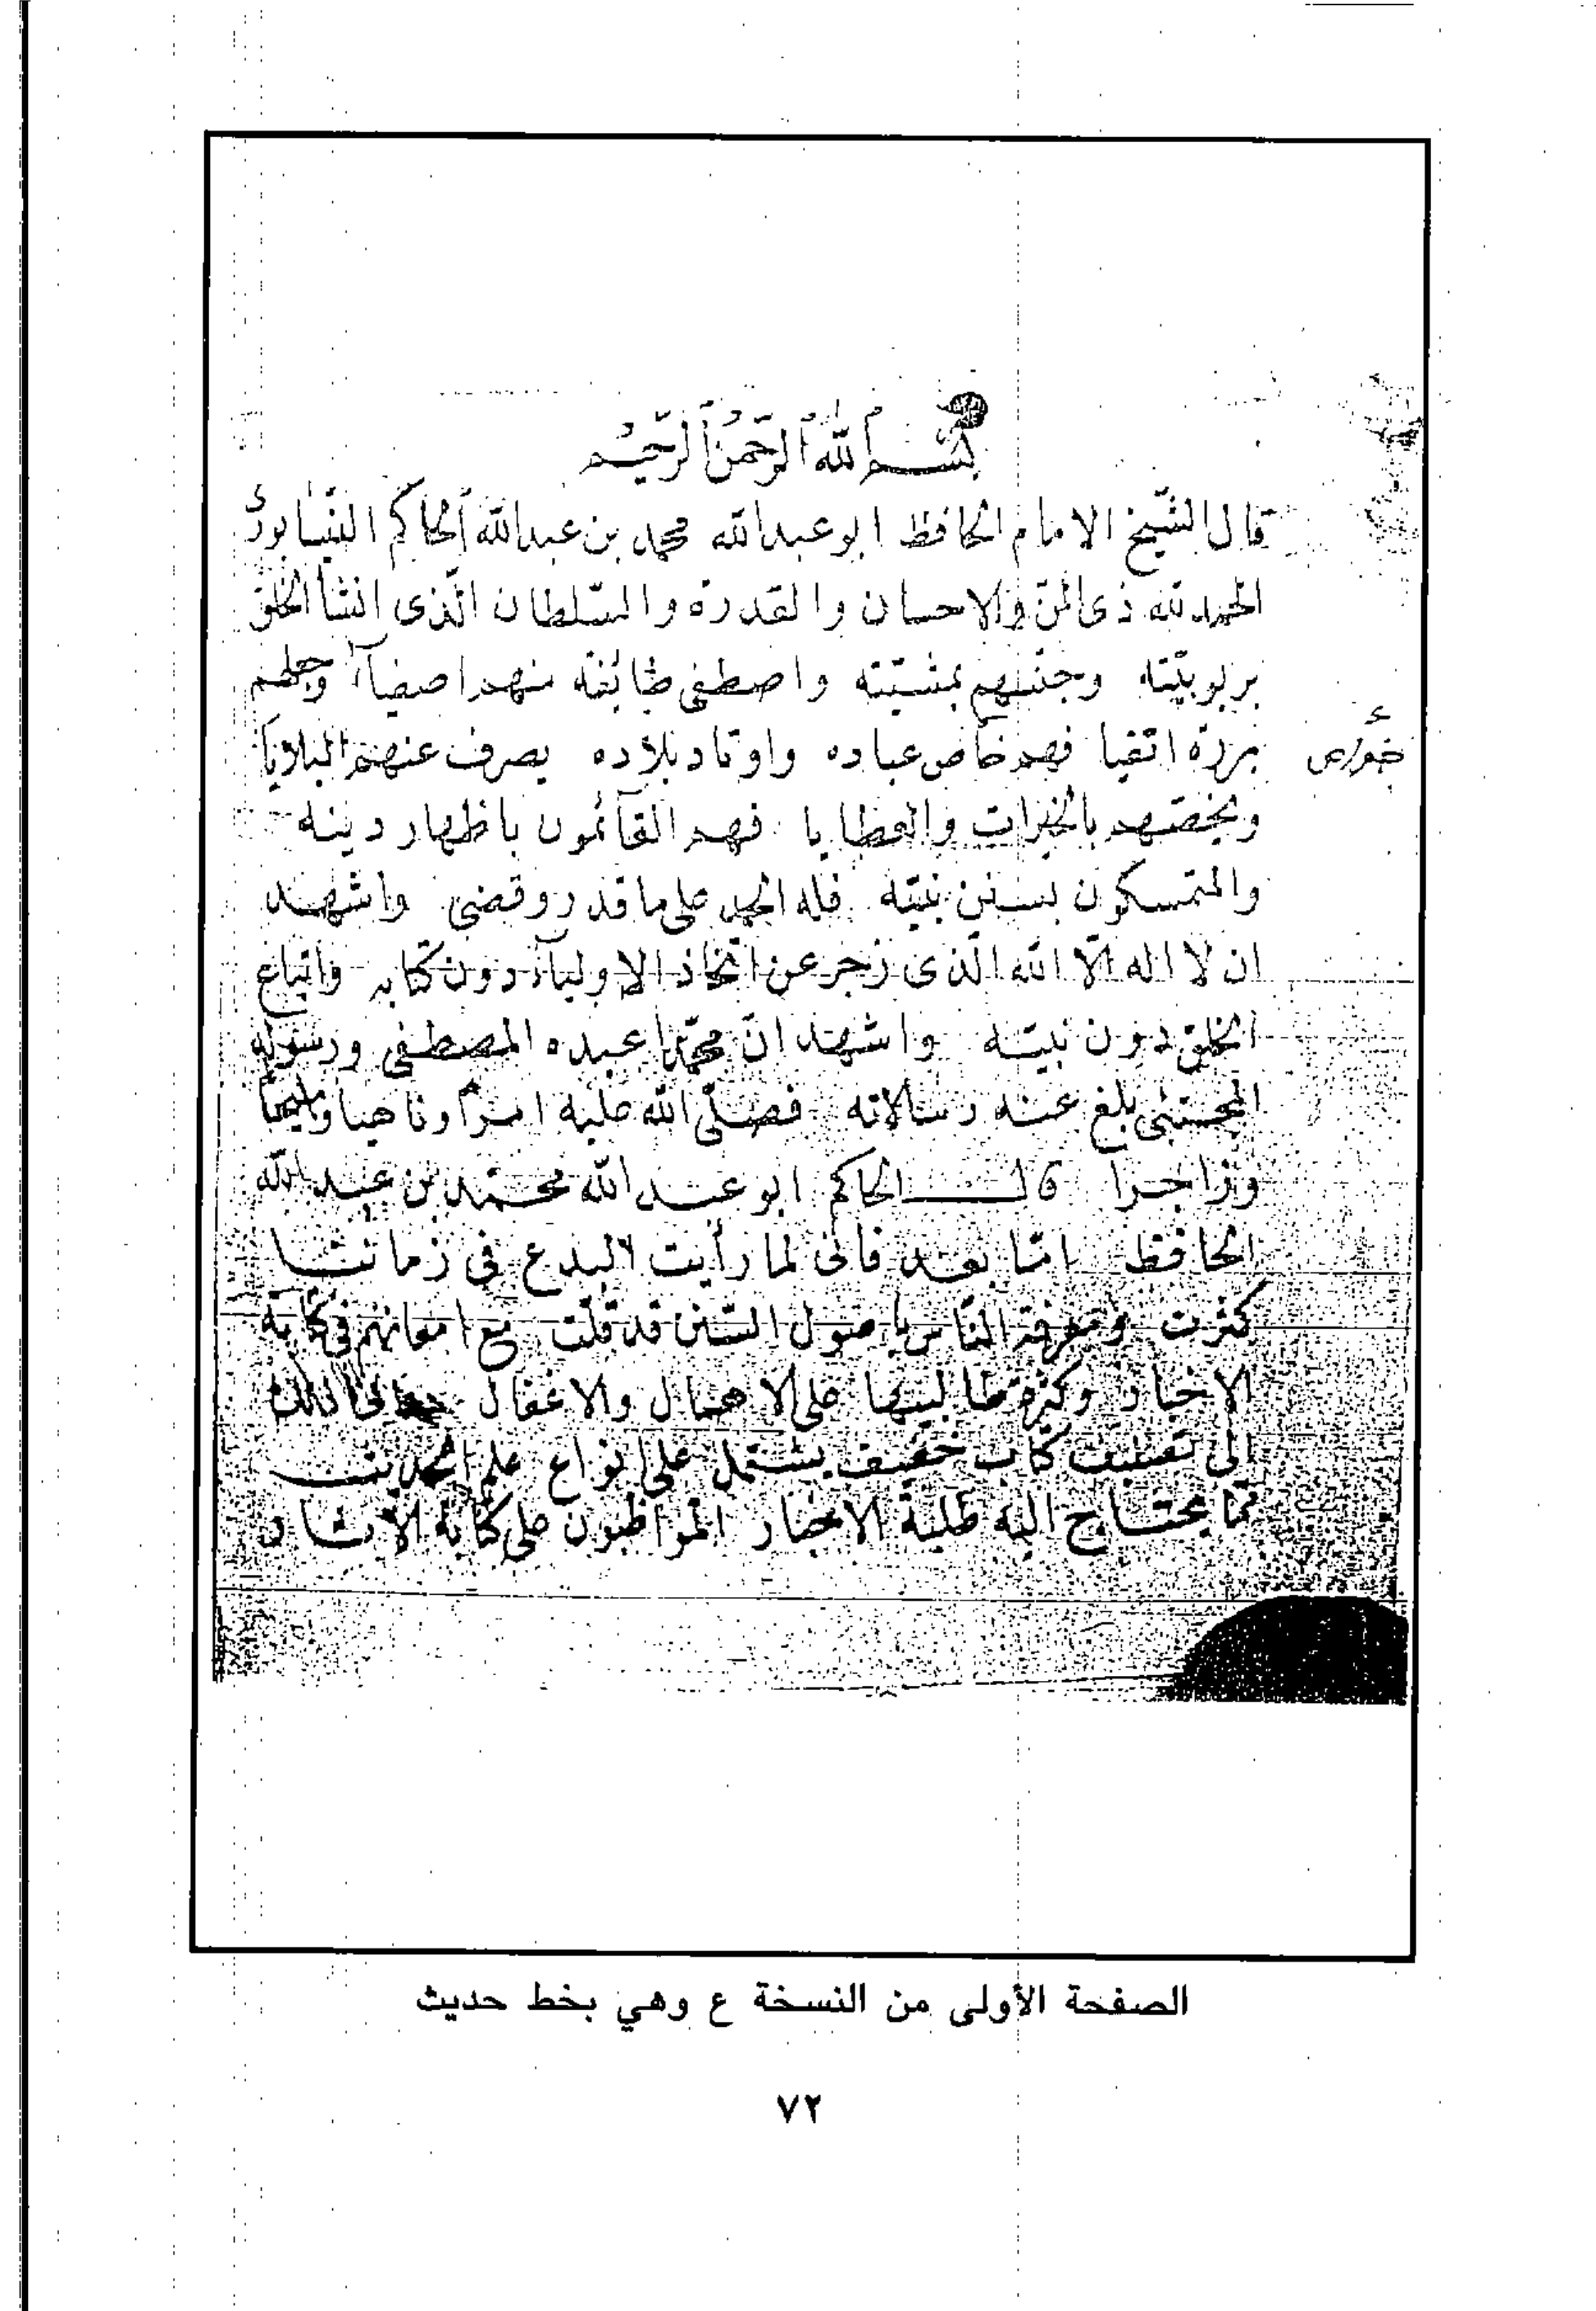 بسم الله الرحمن الرحيم
قال الشيخ الامام الحافظ ابو عبد الله محمد بن عبد الله الحاكم النيسابورى
الحمد لله ذى المن والاحسان والقدرة والسلطان الذى انشأ الخلق
بربوبيته وجنسهم بمشيته واصطفى طائفة منهم اصفيآء وجعلهم
بررة اتقيا فهم خاص عباده واوتاد بلاده يصرف عنهم البلايا
ويخصهم بالخيرات والعطايا فهم القآئمون باظهار دينه
والمتمسكون بسنن نبيه فله الحمد على ما قدر وقضى واشهد
ان لا اله الا الله الذى زجر عن اتخاذ الاوليآء دون كتابه واتباع
الخلق دون نبيه واشهد ان محمدا عبده المصطفى ورسوله
المجتبى بلغ عنه رسالاته فصلى الله عليه امرا وناهيا ومبيحا
وزاجرا قال الحاكم ابو عبد الله محمد بن عبد الله
الحافظ اما بعد فانى لما رأيت البدع فى زماننا
كثرت ومعرفة الناس باصول السنن قد قلت مع امعانهم فى كتابة
الاخبار وكثرة طالبيها على الاهمال والاغفال دعانى ذلك
الى تصنيف كتاب خفيف يشتمل على انواع علم الحديث
مما يحتاج اليه طلبة الاخبار المواظبون على كتابة الآثار
الصفحة الأولى من النسخة ع وهي بخط حديث
٧٢